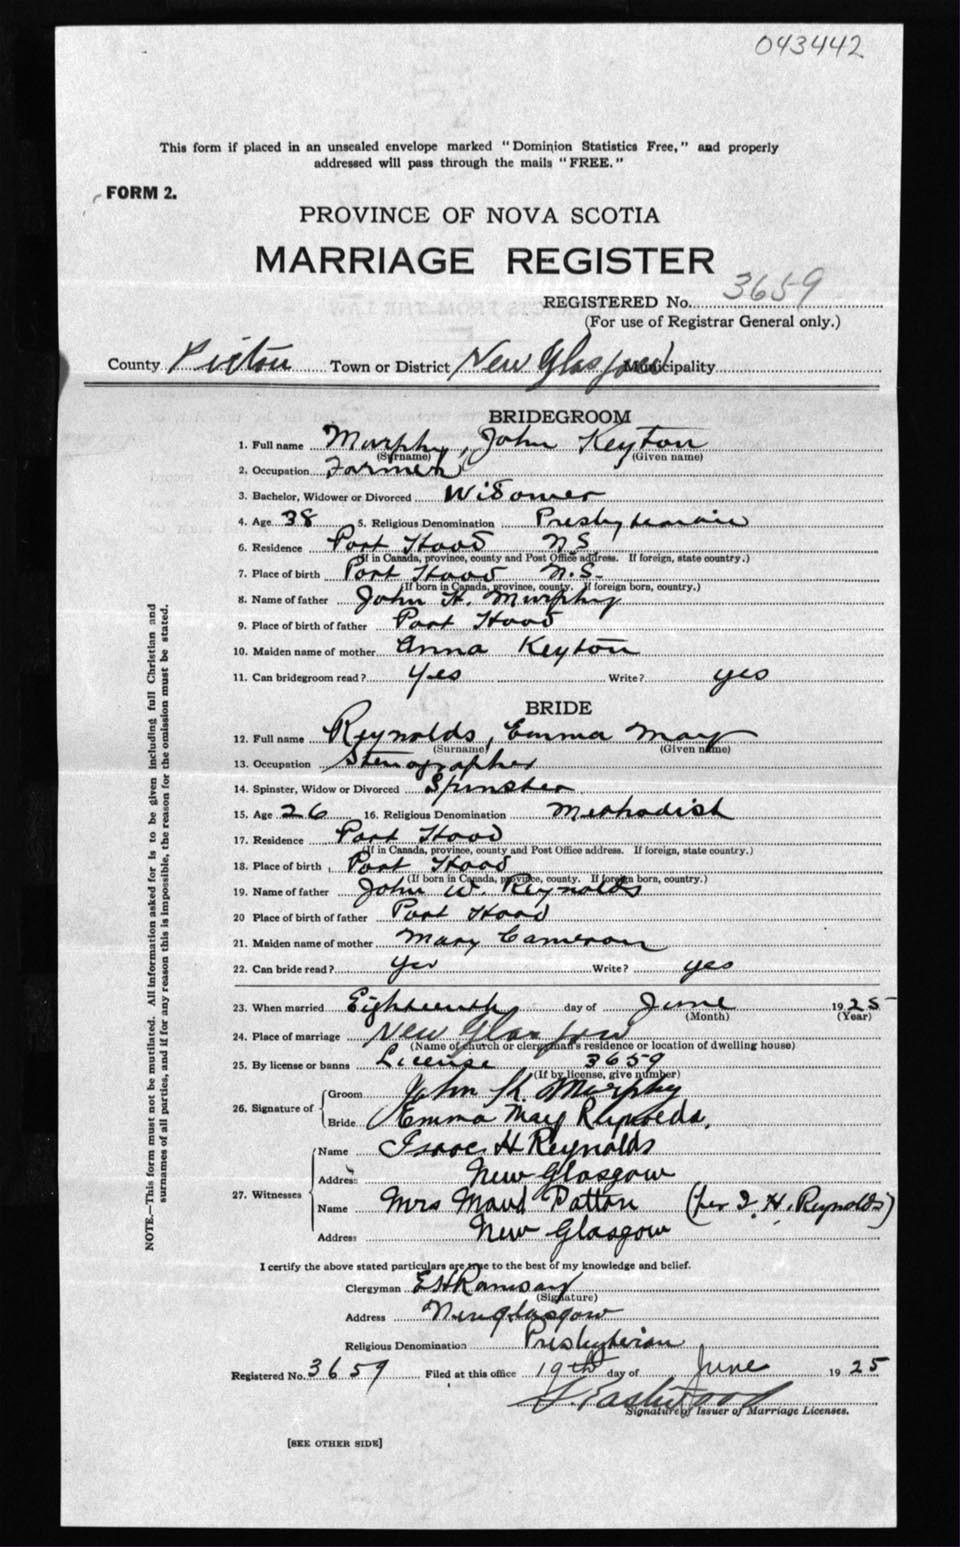 043442
This form if placed in an unsealed envelope marked "Dominion Statistics Free," and properly
addressed will pass through the mails "FREE."
FORM 2.
PROVINCE OF NOVA SCOTIA
MARRIAGE REGISTER
REGISTERED No. 3659
(For use of Registrar General only.)
County Pictou Town or District New Glasgow Municipality
BRIDEGROOM
1. Full name Murphy, John Keyton
(Surname) (Given name)
2. Occupation Farmer
3. Bachelor, Widower or Divorced Widower
4. Age 38 5. Religious Denomination Presbyterian
6. Residence Port Hood N S
(If in Canada, province, county and Post Office address. If foreign, state country.)
7. Place of birth Port Hood N.S.
(If born in Canada, province, county. If foreign born, country.)
8. Name of father John H. Murphy
9. Place of birth of father Port Hood
10. Maiden name of mother Anna Keyton
11. Can bridegroom read? Yes Write? yes
BRIDE
12. Full name Reynolds, Emma May
(Surname) (Given name)
13. Occupation Stenographer
14. Spinster, Widow or Divorced Spinster
15. Age 26 16. Religious Denomination Methodist
17. Residence Port Hood
(If in Canada, province, county and Post Office address. If foreign, state country.)
18. Place of birth Port Hood
(If born in Canada, province, county. If foreign born, country.)
19. Name of father John W. Reynolds
20 Place of birth of father Port Hood
21. Maiden name of mother Mary Cameron
22. Can bride read? Yes Write? yes
23. When married Eighteenth day of June 1925
(Month) (Year)
24. Place of marriage New Glasgow
(Name of church or clergyman's residence or location of dwelling house)
25. By license or banns License 3659
(If by license, give number)
26. Signature of Groom John K. Murphy
Bride Emma May Reynolds.
27. Witnesses Name Isaac H Reynolds
Address New Glasgow
Name Mrs Maud Patton (per I. H. Reynolds)
Address New Glasgow
I certify the above stated particulars are true to the best of my knowledge and belief.
Clergyman E H Ramsay
(Signature)
Address New Glasgow
Religious Denomination Presbyterian
Registered No. 3659 Filed at this office 19th day of June 1925
Eastwood
Signature of Issuer of Marriage Licenses.
[SEE OTHER SIDE]
NOTE.—This form must not be mutilated. All information asked for is to be given including full Christian and
surnames of all parties, and if for any reason this is impossible, the reason for the omission must be stated.